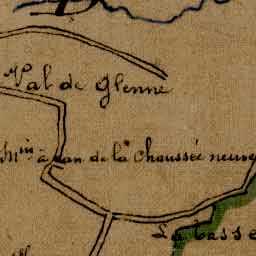 Val de Glenne
Min à eau de la Chaussée neuve
La Casse